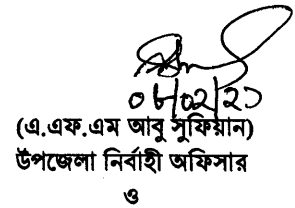 ০৮/০২/২১
(এ.এফ.এম আবু সুফিয়ান)
উপজেলা নির্বাহী অফিসার
ও